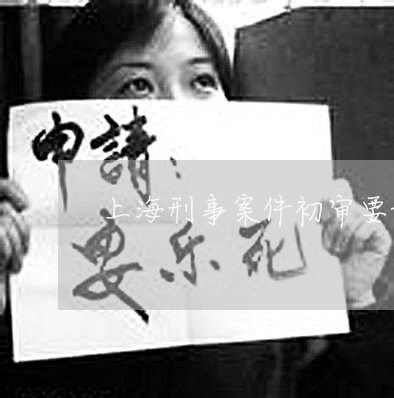 申請：
上海刑事案件初审要
要乐死